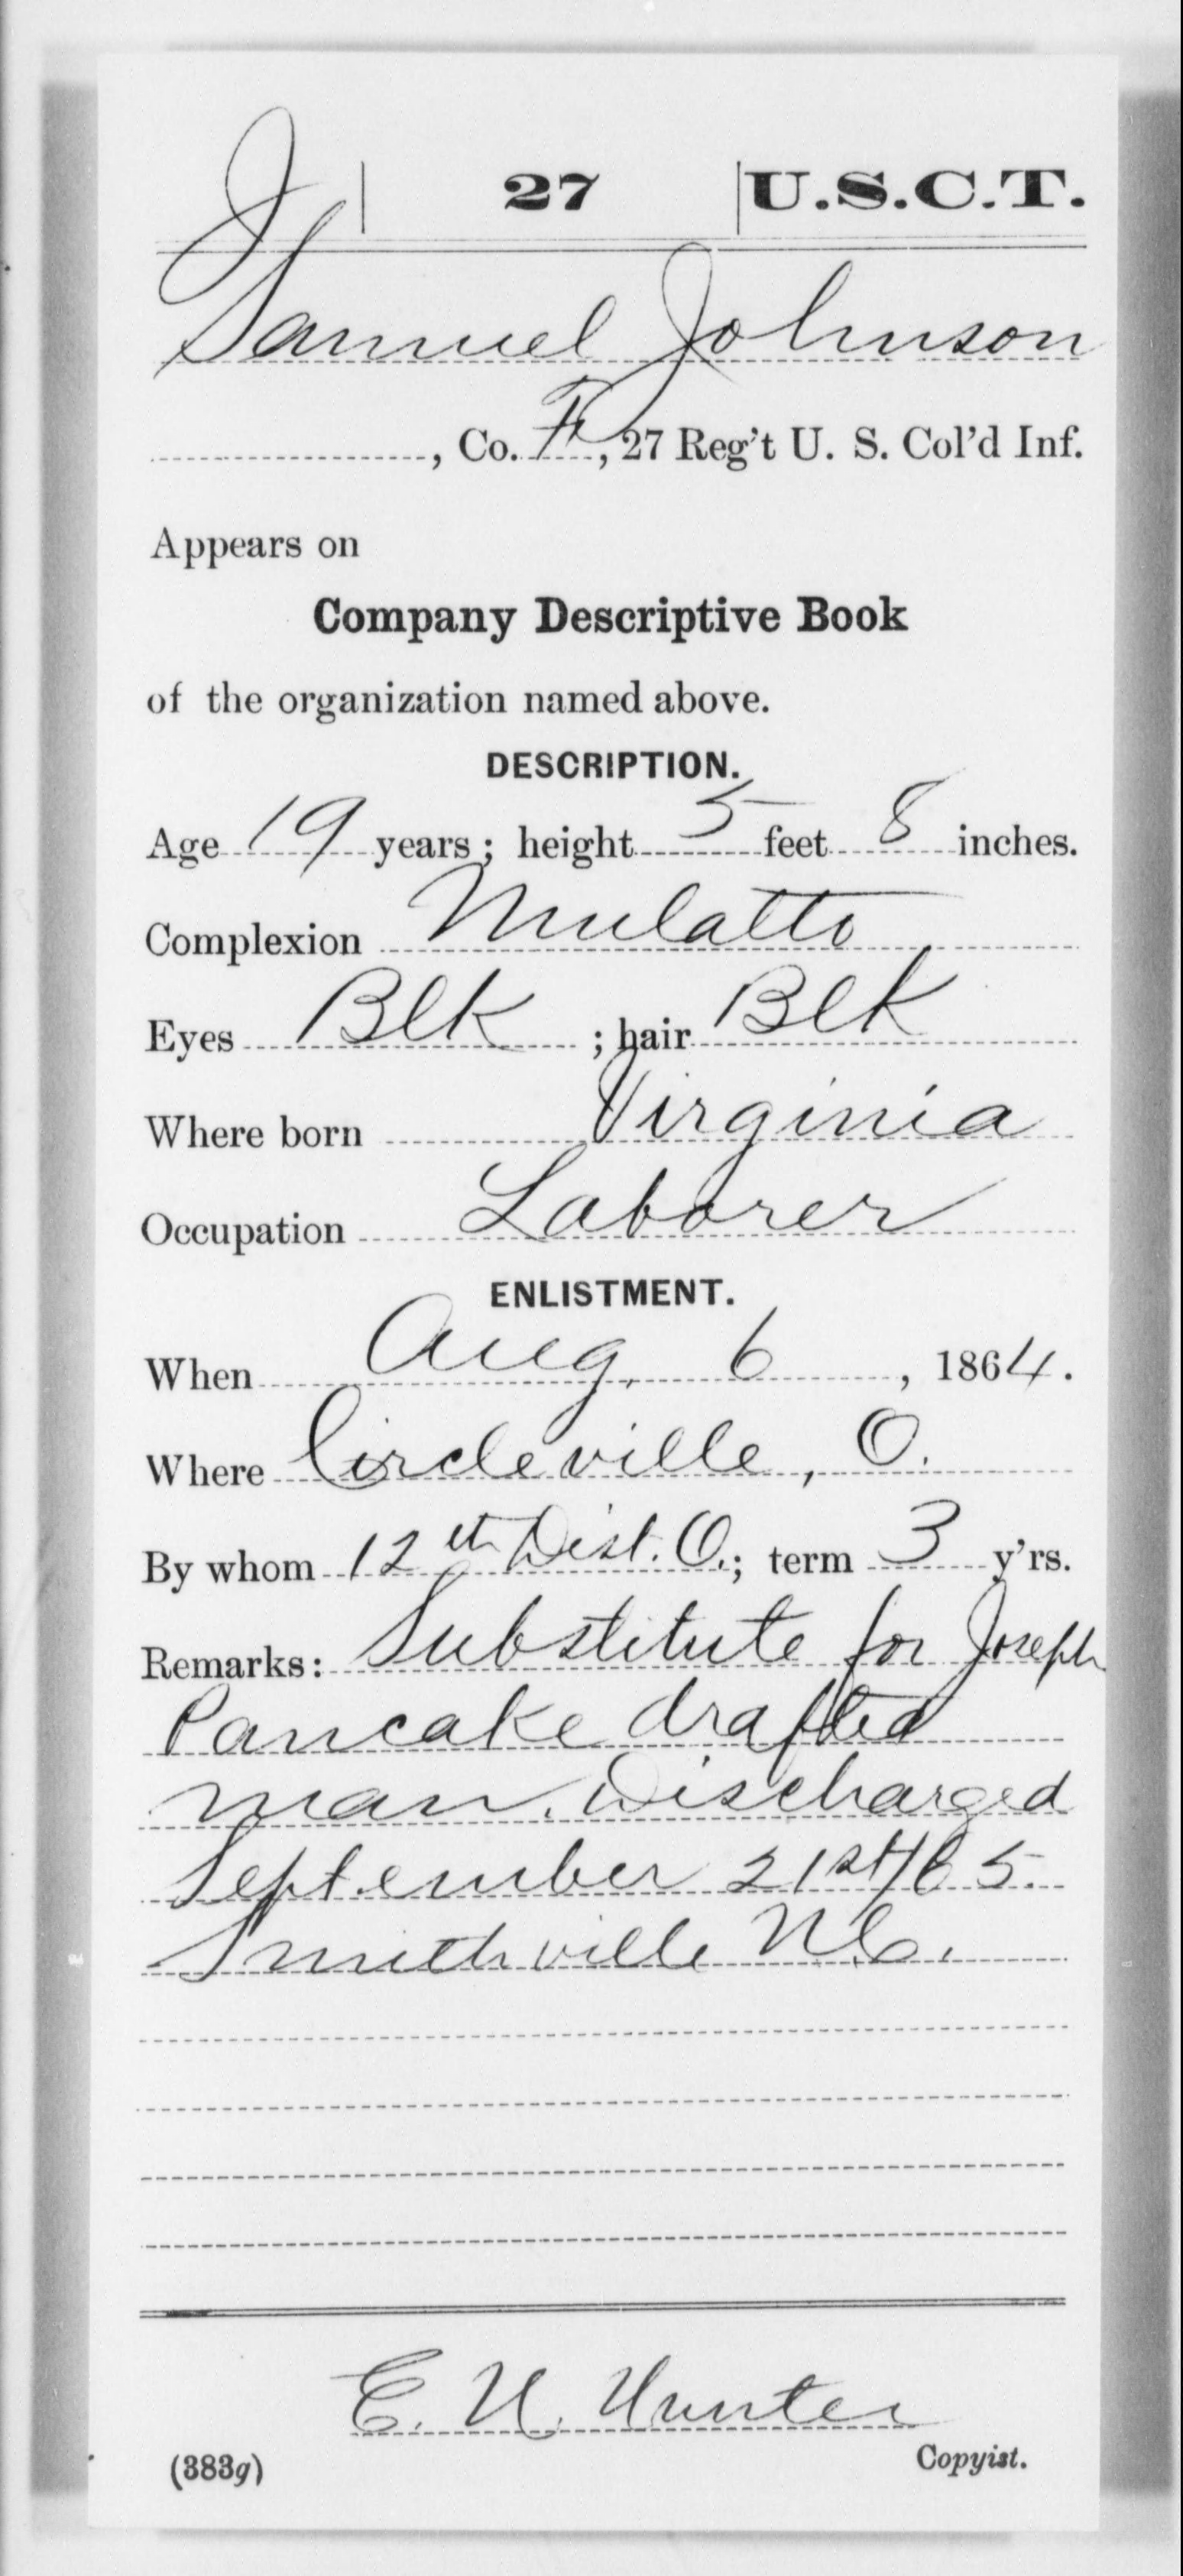 J | 27 | U.S.C.T.
Samuel Johnson
, Co. F, 27 Reg't U. S. Col'd Inf.
Appears on
Company Descriptive Book
of the organization named above.
DESCRIPTION.
Age 19 years; height 5 feet 8 inches.
Complexion Mulatto
Eyes Blk ; hair Blk
Where born Virginia
Occupation Laborer
ENLISTMENT.
When Aug. 6, 1864.
Where Circleville, O.
By whom 12th Dist. O.; term 3 y'rs.
Remarks: Substitute for Joseph
Pancake drafted
man. Discharged
September 21st/65.
Smithville N.C.
E. N. Hunter
Copyist.
(383g)